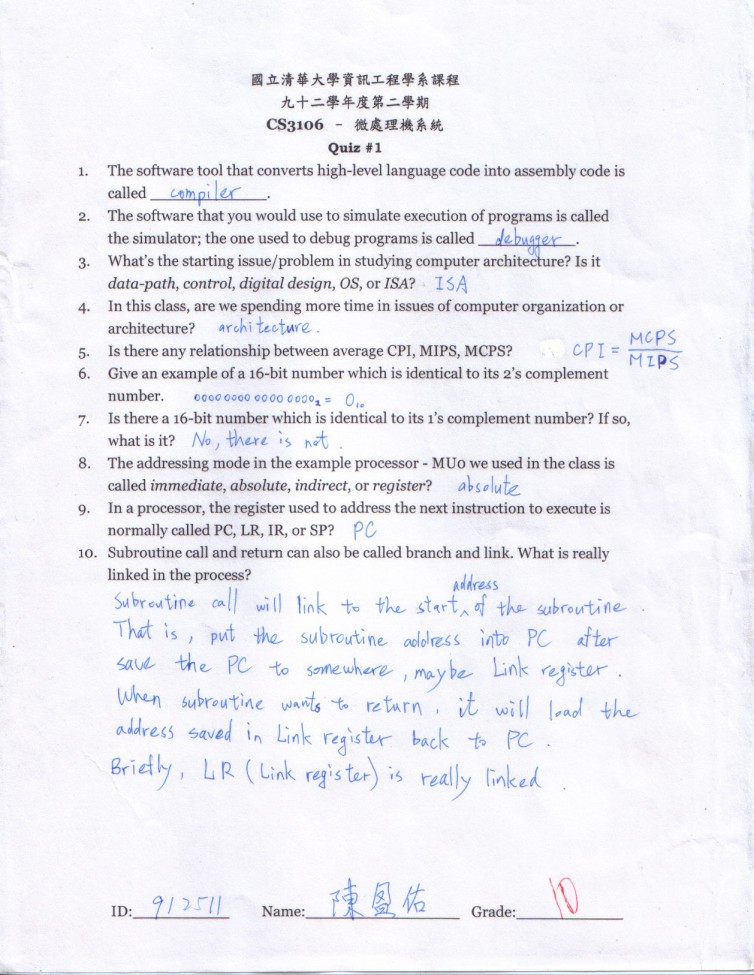 國立清華大學資訊工程學系課程
九十二學年度第二學期
CS3106 - 微處理機系統
Quiz #1
1. The software tool that converts high-level language code into assembly code is
called compiler.
2. The software that you would use to simulate execution of programs is called
the simulator; the one used to debug programs is called debugger.
3. What's the starting issue/problem in studying computer architecture? Is it
data-path, control, digital design, OS, or ISA? ISA
4. In this class, are we spending more time in issues of computer organization or
architecture? architecture.
5. Is there any relationship between average CPI, MIPS, MCPS? CPI = MCPS / MIPS
6. Give an example of a 16-bit number which is identical to its 2's complement
number. 0000 0000 0000 0000₂ = 0₁₀
7. Is there a 16-bit number which is identical to its 1's complement number? If so,
what is it? No, there is not.
8. The addressing mode in the example processor - MU0 we used in the class is
called immediate, absolute, indirect, or register? absolute
9. In a processor, the register used to address the next instruction to execute is
normally called PC, LR, IR, or SP? PC
10. Subroutine call and return can also be called branch and link. What is really
linked in the process?
Subroutine call will link to the start address of the subroutine.
That is, put the subroutine address into PC after
save the PC to somewhere, maybe Link register.
When subroutine wants to return, it will load the
address saved in Link register back to PC.
Briefly, LR (Link register) is really linked.
ID: 912511 Name: 陳盈佑 Grade: 10